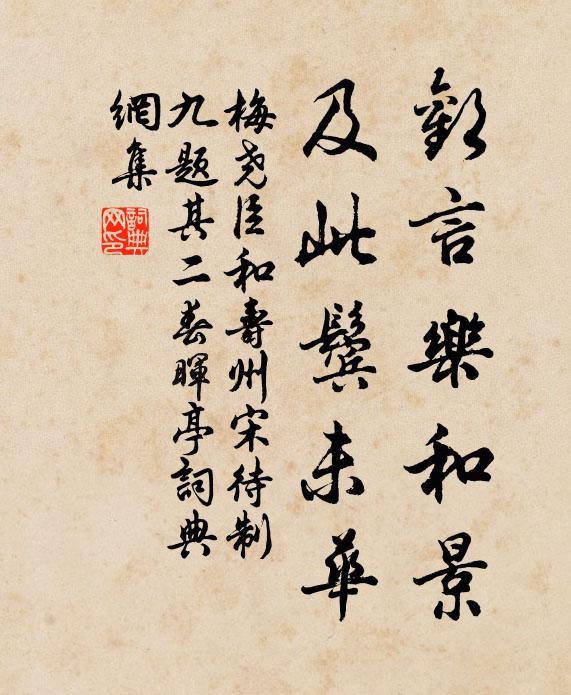 歡言樂和景
及此鬢未華
梅堯臣和壽州宋待制
九題其二春暉亭詞典
網集
詞典网印